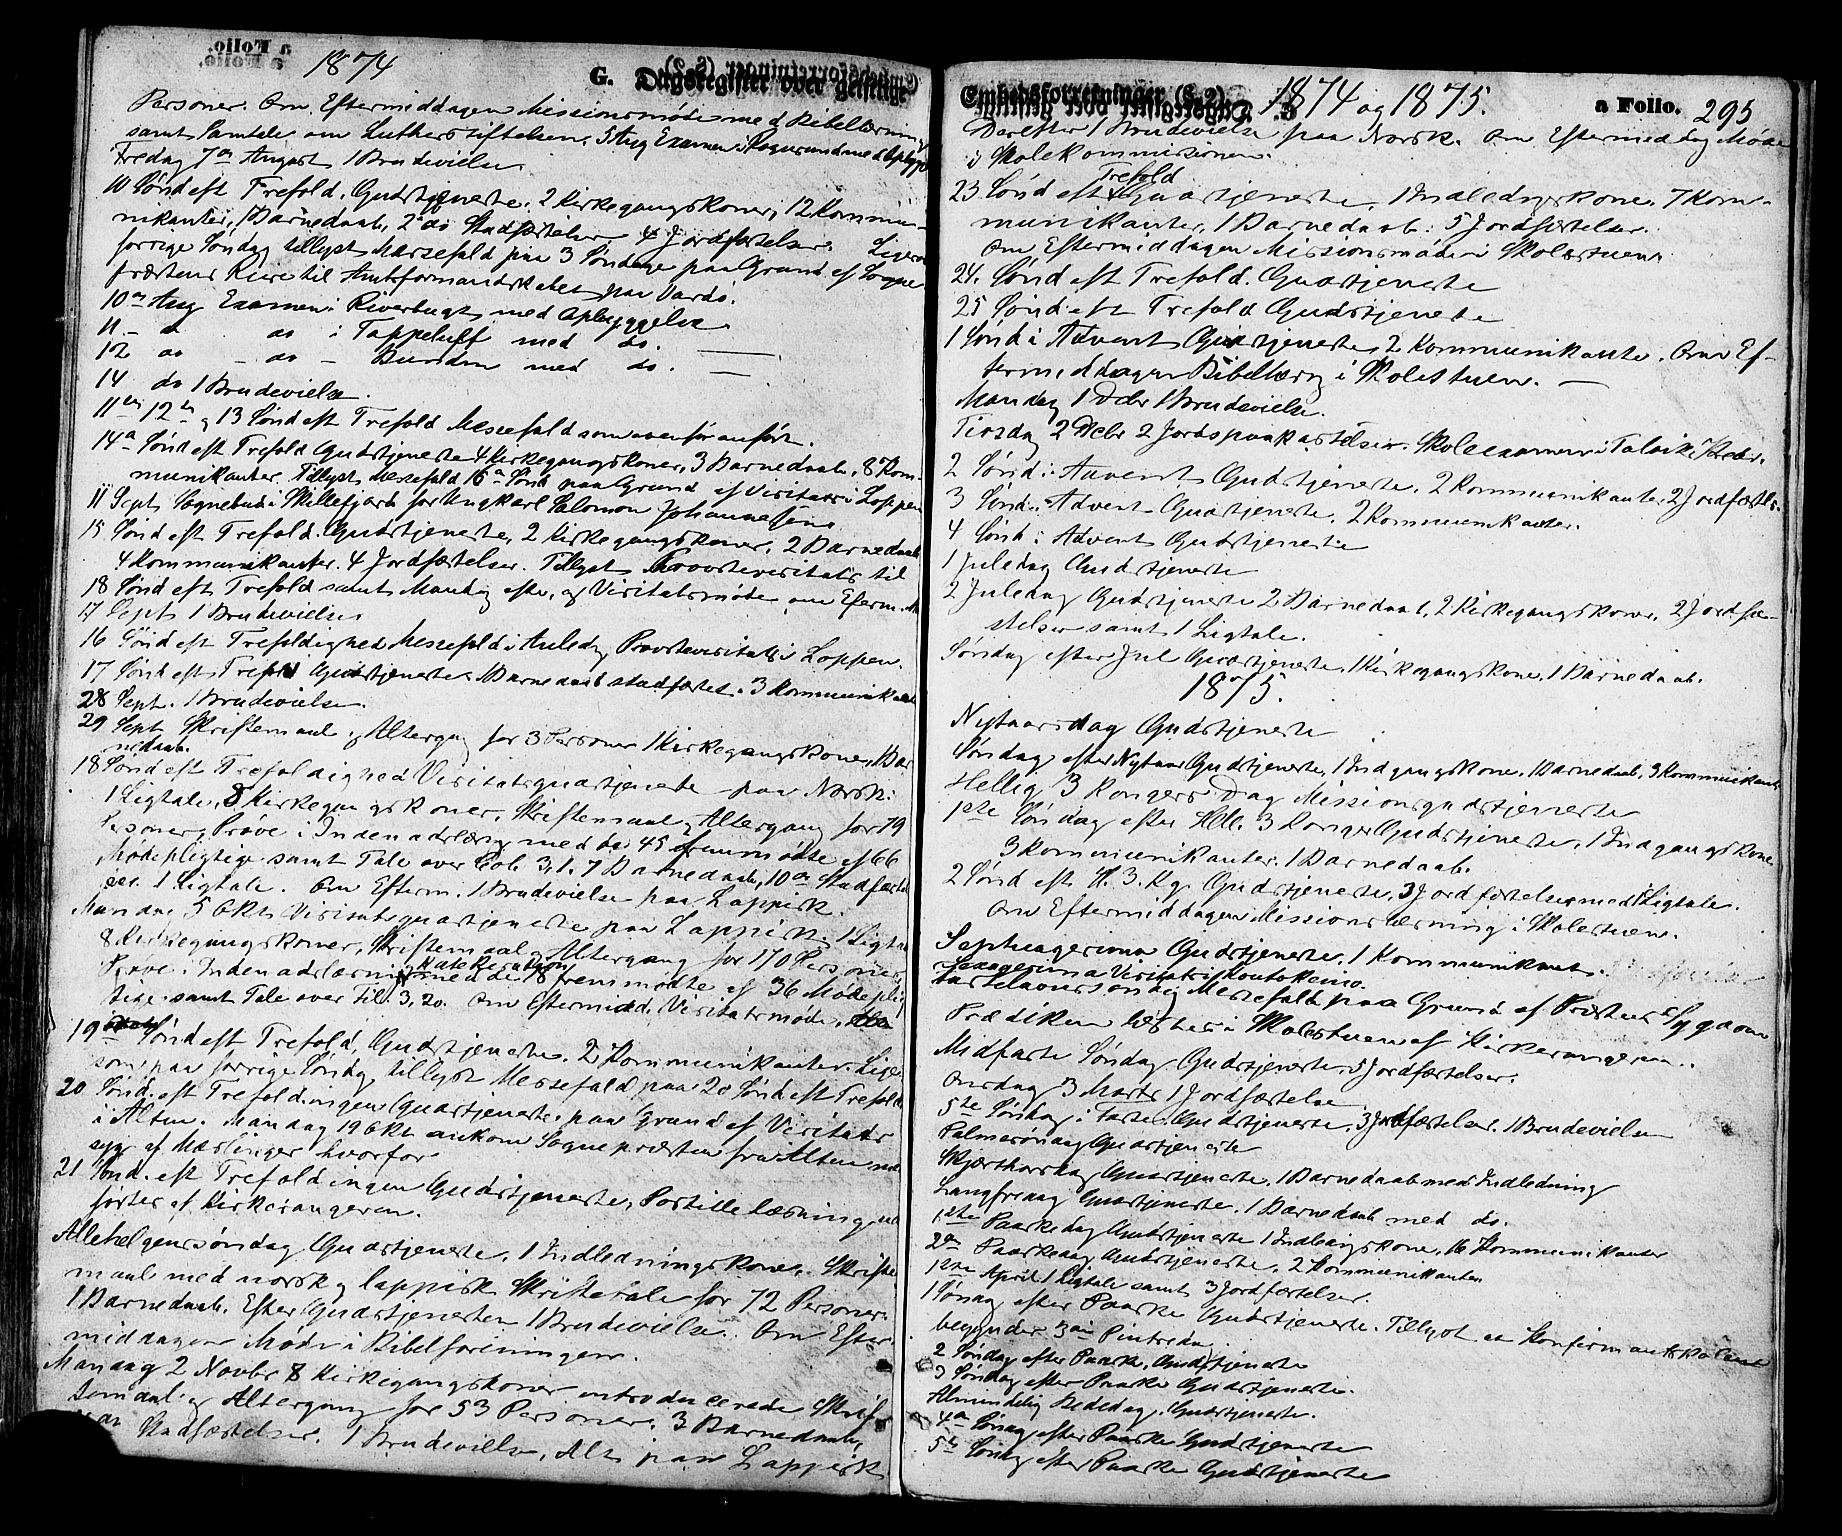 1874
G. Dagsregister over geistlige
Personer. Om Eftermiddagen Missionsmøde med Bibellæsning
samt Samtale om Lutherstiftelsen. 5 Aug Examen i med Opbygg
Fredag 7de August 1 Brudevielse
10 Sønd eft Trefold. Gudstjeneste. 2 Kirkegangskoner, 12 Kommu-
nikanter, 1 Barnedaab, 2 do Stadfæstelser 4 Jordfæstelser. Ligesom
forrige Søndag tillyst Messefald paa 3 Søndage paa Grund af Sogne
præstens Reise til Amtsformandskabet paa Vardø.
10de Aug Examen i Riverbugt med Opbyggelse
11 - do do i Tappeluft med do.
12 do - do - Burden med do.
14 do 1 Brudevielse.
11te, 12te og 13 Sønd eft Trefold Messefald som ovenfor anført.
14de Sønd eft Trefold Gudstjeneste 4 Kirkegangskoner, 3 Barnedaab, 8 Kom-
munikanter. Tillyst Messefald 16de Sønd paa Grund af Visitats i Loppen
11 Sept Sognebud i Skillefjord for Ungkarl Salomon Johannesen
15 Sønd eft Trefold. Gudstjeneste, 2 Kirkegangskoner, 2 Barnedaab
4 Kommunikanter. 4 Jordfæstelser. Tillyst Provstevisitats til
18 Sønd eft Trefold samt Mandag efter, og Visitatsmøde om Efterm.
17 Sept 1 Brudevielse
16 Sønd eft Trefoldighed Messefald i Anledn. Provstevisitats i Loppen.
17 Sønd eft Trefold Gudstjeneste 1 Barnedaab stadfæstet. 3 Kommunikanter
28 Sept. 1 Brudevielse.
29 Sept Skriftemaal og Altergang for 3 Personer 1 Kirkegangskone, 1 Bar
nedaab.
18 Sønd eft Trefoldighed Visitatsgudstjeneste paa Norsk:
1 Ligtale, 8 Kirkegangskoner, Skriftemaal og Altergang for 79
Personer, Prøve i Indenadslæsning med de 45 fremmødte af 66
Mødepligtige samt Tale over Col. 3,1. 7 Barnedaab, 10de Stadfæstel
ser. 1 Ligtale. Om Efterm. 1 Brudevielse paa Lappisk.
Mandag 5 Okt. Visitatsgudstjeneste paa Lappisk, 1 Ligtale
8 Kirkegangskoner, Skriftemaal og Altergang for 170 Personer,
Prøve i Indenadslæsning Katekisation med de 18 fremmødte af 36 Mødeplig
tige samt Tale over Fil. 3, 20. Om Eftermidd. Visitatsmøde.
19de Sønd eft Trefold, Gudstjeneste. 2 Kommunikanter. Lige
som paa forrige Søndag tillyst Messefald paa 20 Sønd eft Trefold
20 Sønd. eft Trefold ingen Gudstjeneste paa Grund af Visitats
i Alten. Mandag 19 Okt ankom Sognepræsten fra Alten
syg af Mæslinger hvorfor
21 Sønd. eft Trefold ingen Gudstjeneste, Postillelæsning
førtes af Kirkesangeren.
Allehelgenssøndag Gudstjeneste, 1 Indledningskone. Skrifte
maal med norsk og lappisk Skriftetale for 72 Personer
1 Barnedaab. Efter Gudstjenesten 1 Brudevielse. Om Efter
middagen Møde i Bibelforeningen.
Mandag 2 Novbr 8 Kirkegangskoner introducerede Skrif
temaal og Altergang for 53 Personer. 3 Barnedaab,
Stadfæstelser. 1 Brudevielse, Alt paa Lappisk
Embedsforretninger (§ 2) 1874 og 1875. a Folio. 295
Derefter 1 Brudevielse paa Norsk. Om Eftermiddag Møde
i Skolekommissionen.
23 Sønd eft Trefold Gudstjeneste, 1 Indledngskone. 7 Kom-
munikanter, 1 Barnedaab. 5 Jordfæstelser.
Om Eftermiddagen Missionsmøde i Skolestuen.
24. Sønd eft Trefold. Gudstjeneste
25 Sønd eft Trefold Gudstjeneste
1 Sønd i Advent Gudstjeneste 2 Kommunikanter. Om Ef-
termiddagen Bibellæsng i Skolestuen.
Mandag 1 Decbr 1 Brudevielse.
Tirsdag 2 Decbr 2 Jordspaakastelser. Skoleexamen i Talvik
2 Sønd i Advent Gudstjeneste. 2 Kommunikanter 2 Jordfæstelser
3 Sønd i Advent Gudstjeneste. 2 Kommunikanter.
4 Sønd i Advent Gudstjeneste
1 Juledag Gudstjeneste
2 Juledag Gudstjeneste 2 Barnedaab, 2 Kirkegangskoner, 2 Jordfæ-
stelser samt 1 Ligtale.
Søndag efter Jul Gudstjeneste, 1 Kirkegangskone, 1 Barnedaab.
1875.
Nytaarsdag Gudstjeneste
Søndag efter Nytaar Gudstjeneste, 1 Indgangskone, 1 Barnedaab, 3 Kommunikanter
Hellig 3 Kongers Dag Missionsgudstjeneste
1ste Søndag efter Hell. 3 Konger Gudstjeneste, 1 Indgangskone
3 Kommunikanter. 1 Barnedaab.
2 Sønd eft H. 3. Kg. Gudstjeneste, 3 Jordfæstelser med 1 Ligtale.
Om Eftermiddagen Missionslæsning i Skolestuen.
Septuagesima Gudstjeneste, 1 Kommunikant.
Sexagesima Visitats i Koutokeino.
Fastelavnssøndag Messefald paa Grund af Præstens Sygdom
Prædiken læstes i Skolestuen af Kirkesangeren.
Midfaste Søndag Gudstjeneste, 5 Jordfæstelser.
Onsdag 3 Marts 1 Jordfæstelse
5te Søndag i Faste Gudstjeneste, 3 Jordfæstelser. 1 Brudevielse
Palmesøndag Gudstjeneste
Skjærthorsdag Gudstjeneste. 1 Barnedaab med Indledning
Langfredag Gudstjeneste. 1 Barnedaab med do.
1ste Paaskedag Gudstjeneste 1 Indledngskone, 16 Kommunikanter
2den Paaskedag Gudstjeneste, 2 Kommunikanter
1ste April 1 Ligtale samt 3 Jordfæstelser.
1 Søndag efter Paaske Gudstjeneste. Tillyst at Konfirmantskolen
begynder 3die Pintsedag.
2 Søndag efter Paaske, Gudstjeneste
3 Søndag efter Paaske Gudstjeneste.
Almindelig Bededag. Gudstjeneste.
4de Søndag efter Paaske Gudstjeneste
5te Søndag efter Paaske Gudstjeneste